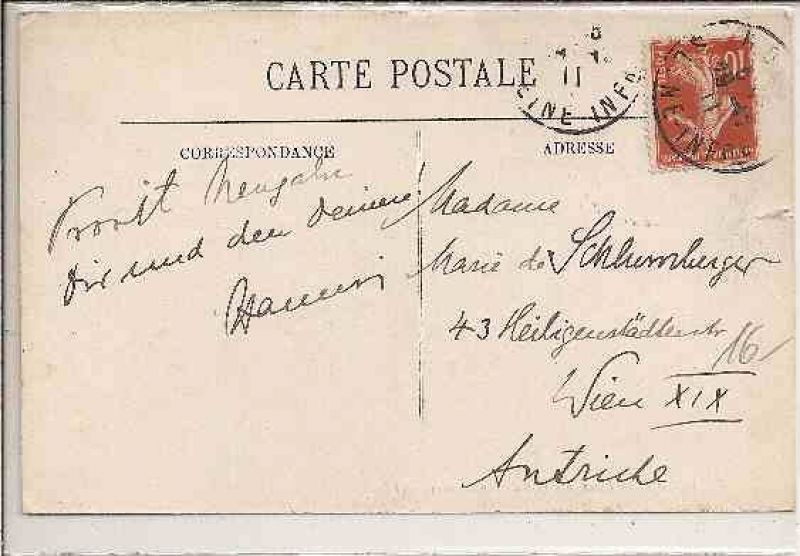 CARTE POSTALE
CORRESPONDANCE
ADRESSE
Prosit Neujahr
Dir und den Deinen!
Madame
Marie de Schlumberger
43 Heiligenstädterstr
16
Wien XIX
Autriche
10
11
INE INF
INE INF